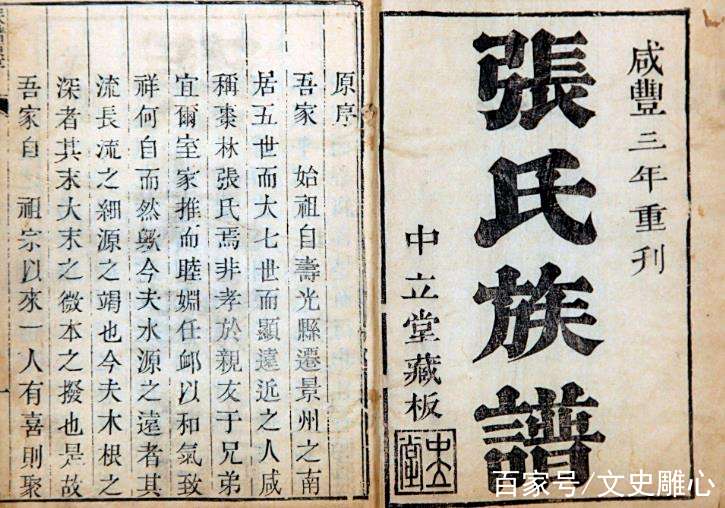 咸豐三年重刊
張氏族譜
中立堂藏板
中立堂
原序
吾家　始祖自壽光縣遷景州之南
居五世而大七世而顯遠近之人咸
稱棗林張氏焉非孝於親友于兄弟
宜爾室家推而睦婣任卹以和氣致
祥何自而然歟今夫水源之遠者其
流長流之細源之竭也今夫木根之
深者其末大末之微本之撥也是故
吾家自　祖宗以來一人有喜則聚
一
百家号/文史雕心